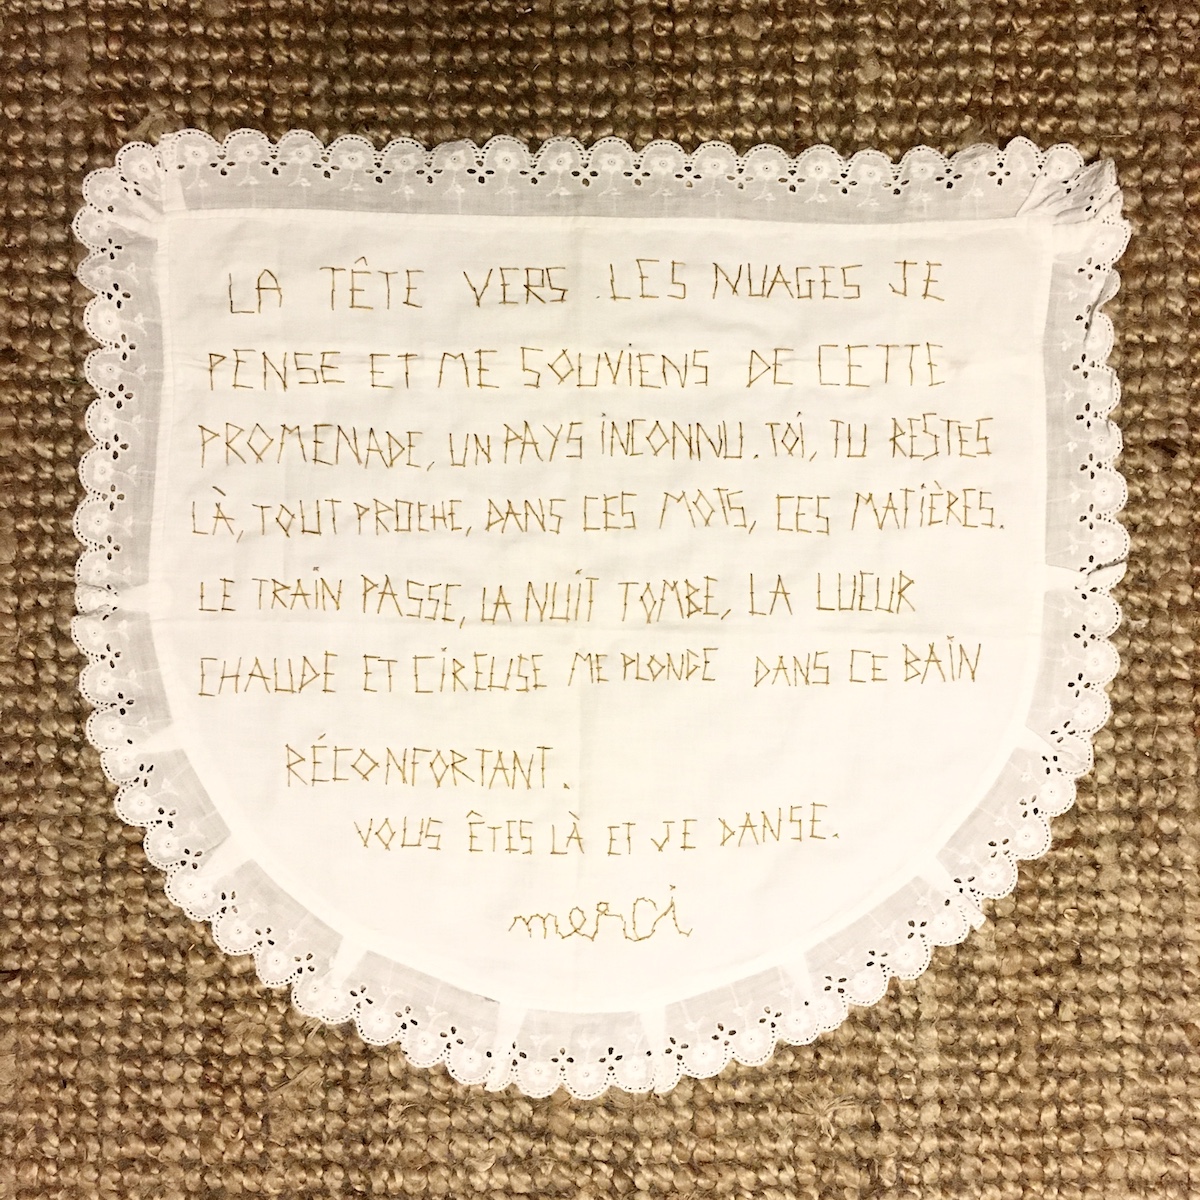 LA TÊTE VERS LES NUAGES JE
PENSE ET ME SOUViENS DE CETTE
PROMENADE, UN PAYS iNCONNU. TOi, TU RESTES
LÀ, TOUT PROCHE, DANS CES MOTS, CES MATiÈRES.
LE TRAiN PASSE, LA NUiT TOMBE, LA LUEUR
CHAUDE ET CiREUSE ME PLONGE DANS CE BAiN
RÉCONFORTANT.
VOUS ÊTES LÀ ET JE DANSE.
merci